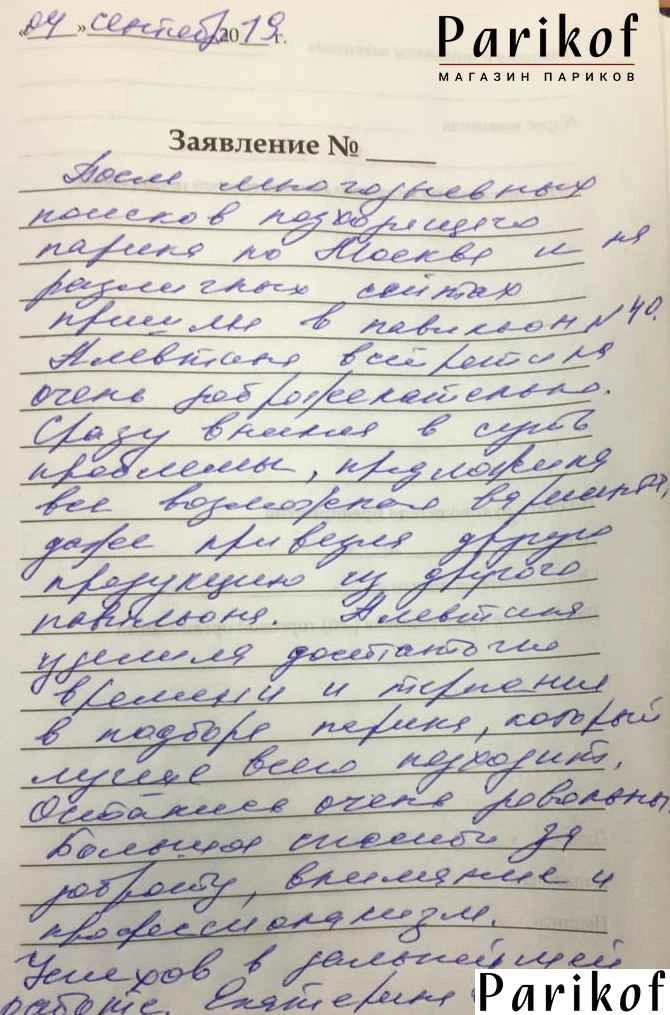 Parikof
МАГАЗИН ПАРИКОВ
«04» сентября 2019 г.
Заявление № ____
После многодневных
поисков подходящего
парика по Москве и на
различных сайтах
пришли в павильон №40.
Алевтина встретила
очень доброжелательно.
Сразу вникла в суть
проблемы, предложила
все возможные варианты,
даже привезла другую
продукцию из другого
павильона. Алевтина
уделила достаточно
времени и терпения
в подборе парика, который
лучше всего подходит.
Остались очень довольны.
Большое спасибо за
доброту, внимание и
профессионализм.
Успехов в дальнейшей
работе. Екатерина
Parikof